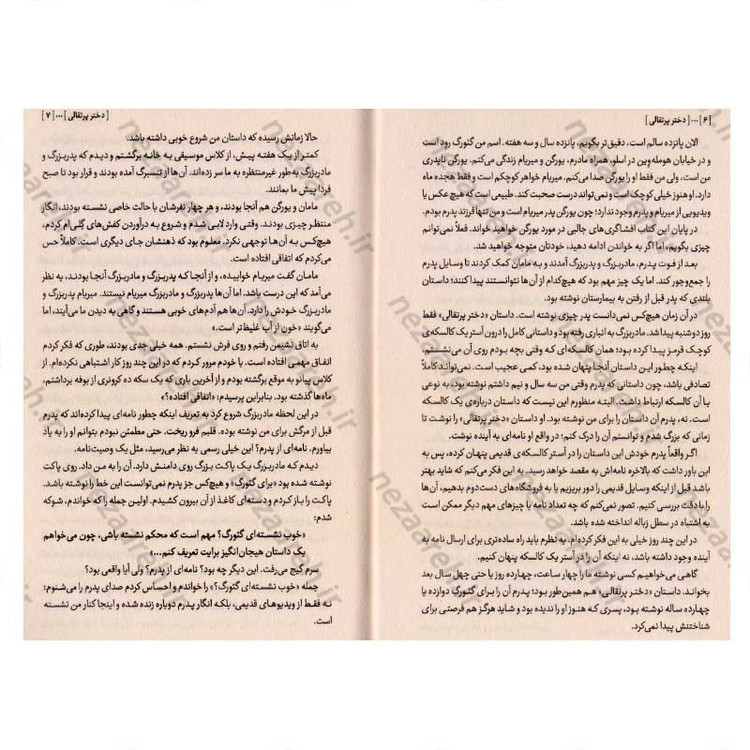 [۶] ... [دختر پرتقالی]
الان پانزده سالم است، دقیق‌تر بگویم، پانزده سال و سه هفته. اسم من گئورگ رود است
و در خیابان هومله‌وین در اسلو، همراه مادرم، یورگن و میریام زندگی می‌کنم. یورگن ناپدری
من است، ولی من فقط او را یورگن صدا می‌کنم. میریام خواهر کوچکم است و فقط هجده ماه
دارد. او هنوز خیلی کوچک است و نمی‌تواند درست صحبت کند. طبیعی است که هیچ عکس یا
ویدیویی از میریام و پدرم وجود ندارد؛ چون یورگن پدر میریام است و من تنها فرزند پدرم بودم.
در پایان این کتاب افشاگری‌های جالبی در مورد یورگن خواهم کرد. فعلاً نمی‌توانم
چیزی بگویم، اما اگر به خواندن ادامه دهید، خودتان متوجه خواهید شد.
بعد از فوت پدرم، مادربزرگ و پدربزرگ آمدند و به مامان کمک کردند تا وسایل پدرم
را جمع‌وجور کند. اما یک چیز مهم بود که هیچ‌کدام از آن‌ها نتوانستند پیدا کنند؛ داستان
بلندی که پدر قبل از رفتن به بیمارستان نوشته بود.
در آن زمان هیچ‌کس نمی‌دانست پدر چیزی نوشته است. داستان «دختر پرتقالی» فقط
روز دوشنبه پیدا شد. مادربزرگ به انباری رفته بود و داستانی کامل را درون آستر یک کالسکه‌ی
کوچک قرمز پیدا کرده بود؛ همان کالسکه‌ای که وقتی بچه بودم روی آن می‌نشستم.
اینکه چطور این داستان آنجا پنهان شده بود، کمی عجیب است. نمی‌تواند کاملاً
تصادفی باشد، چون داستانی که پدرم وقتی من سه سال و نیم داشتم نوشته بود، به نوعی
با آن کالسکه ارتباط داشت. البته منظورم این نیست که داستان درباره‌ی یک کالسکه
است. نه، پدرم آن داستان را برای من نوشته بود. او داستان «دختر پرتقالی» را نوشت تا
زمانی که بزرگ شدم و توانستم آن را درک کنم؛ در واقع او نامه‌ای به آینده نوشت.
اگر واقعاً پدرم خودش این داستان را در آستر کالسکه‌ی قدیمی پنهان کرده، پس به
این باور داشت که بالاخره نامه‌ای به مقصد خواهد رسید. به این فکر می‌کنم که شاید بهتر
باشد قبل از اینکه وسایل قدیمی را دور بریزیم یا به فروشگاه‌های دست‌دوم بدهیم، آن‌ها
را با دقت بررسی کنیم. تصور نمی‌کنم که چه تعداد نامه یا چیزهای مهم دیگر ممکن است
به اشتباه در سطل زباله انداخته شده باشد.
در این چند روز خیلی به این فکر کرده‌ام. به نظرم باید راه ساده‌تری برای ارسال نامه به
آینده وجود داشته باشد، نه اینکه آن را در آستر یک کالسکه پنهان کنیم.
گاهی می‌خواهیم کسی نوشته ما را چهار ساعت، چهارده روز یا حتی چهل سال بعد
بخواند. داستان «دختر پرتقالی» هم همین‌طور بود؛ پدرم آن را برای گئورگ دوازده یا
چهارده ساله نوشته بود، پسری که هنوز او را ندیده بود و شاید هرگز هم فرصتی برای
شناختنش پیدا نمی‌کرد.
[دختر پرتقالی] ... [۷]
حالا زمانش رسیده که داستان من شروع خوبی داشته باشد.
کمتر از یک هفته پیش، از کلاس موسیقی به خانه برگشتم و دیدم که پدربزرگ و
مادربزرگ به‌طور غیرمنتظره به ما سر زده‌اند. آن‌ها از تنسبرگ آمده بودند و قرار بود تا صبح
فردا پیش ما بمانند.
مامان و یورگن هم آنجا بودند، و هر چهار نفرشان با حالت خاصی نشسته بودند، انگار
منتظر چیزی بودند. وقتی وارد لابی شدم و شروع به درآوردن کفش‌های گِلی‌ام کردم،
هیچ‌کس به آن‌ها توجهی نکرد. معلوم بود که ذهنشان جای دیگری است. کاملاً حس
می‌کردم که اتفاقی افتاده است.
مامان گفت میریام خوابیده، و از آنجا که پدربزرگ و مادربزرگ آنجا بودند، به نظر
می‌آمد که این درست باشد. اما آن‌ها پدربزرگ و مادربزرگ میریام نیستند. میریام پدربزرگ و
مادربزرگ خودش را دارد. آن‌ها هم آدم‌های خوبی هستند و گاهی به دیدن ما می‌آیند، اما
می‌گویند «خون از آب غلیظ‌تر است.»
به اتاق نشیمن رفتم و روی فرش نشستم. همه خیلی جدی بودند، طوری که فکر کردم
اتفاق مهمی افتاده است. با خودم مرور کردم که در این چند روز کار اشتباهی نکرده‌ام. از
کلاس پیانو به موقع برگشته بودم و از آخرین باری که یک سکه ده کرونری از بوفه برداشتم،
ماه‌ها گذشته بود. بنابراین پرسیدم: «اتفاقی افتاده؟»
در این لحظه مادربزرگ شروع کرد به تعریف اینکه چطور نامه‌ای پیدا کرده‌اند که پدرم
قبل از مرگش برای من نوشته بوده. قلبم فرو ریخت. حتی مطمئن نبودم بتوانم او را به یاد
بیاورم. نامه‌ای از پدرم؟ این خیلی رسمی به نظر می‌رسید، مثل یک وصیت‌نامه.
دیدم که مادربزرگ یک پاکت بزرگ روی دامنش دارد. آن را به من داد. روی پاکت
نوشته شده بود «برای گئورگ» و هیچ‌کس جز پدرم نمی‌توانست این خط را نوشته باشد.
پاکت را باز کردم و دسته‌ای کاغذ از آن بیرون کشیدم. اولین جمله را که خواندم، شوکه
شدم:
«خوب نشسته‌ای گئورگ؟ مهم است که محکم نشسته باشی، چون می‌خواهم
یک داستان هیجان‌انگیز برایت تعریف کنم...»
سرم گیج می‌رفت. این دیگر چه بود؟ نامه‌ای از پدرم؟ ولی آیا واقعی بود؟
جمله «خوب نشسته‌ای گئورگ؟» را خواندم و احساس کردم صدای پدرم را می‌شنوم؛
نه فقط از ویدیوهای قدیمی، بلکه انگار پدرم دوباره زنده شده و اینجا کنار من نشسته
است.
nezaareh.ir